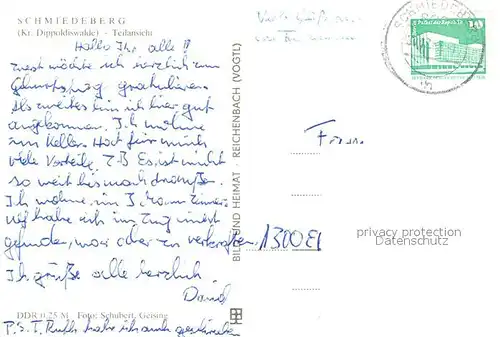 SCHMIEDEBERG
(Kr. Dippoldiswalde) - Teilansicht
Hallo Ihr alle!!
Zuerst möchte ich herzlich zum
Geburtstag gratulieren.
Als zweites bin ich hier gut
angekommen. Ich wohne
im Keller. Hat für mich
viele Vorteile. z.B. Es ist nicht
so weit bis nach draußen.
Ich wohne im 3 Mann Zimmer.
habe ich im Zug
gefunden, war aber zu verkraften
Ich grüße alle herzlich
David
DDR 0,25 M Foto: Schubert, Geising
P.S. T. Ruth habe ich auch geschrieben
BILD UND HEIMAT · REICHENBACH (VOGTL)
Viele Grüße
von
SCHMIEDEBERG
Palast der Republik
10
Frau
1300 E1
privacy protection
Datenschutz